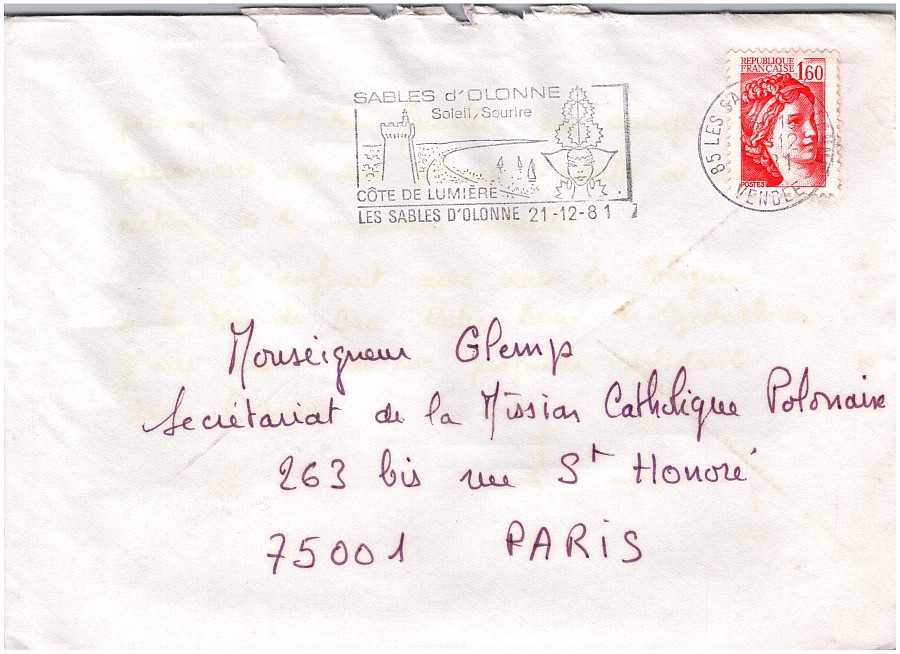 SABLES d'OLONNE
Soleil, Sourire
CÔTE DE LUMIÈRE
LES SABLES D'OLONNE 21-12-81
REPUBLIQUE
FRANÇAISE 1,60
POSTES
85 LES SA
12
VENDEE
Monseigneur Glemp
Secrétariat de la Mission Catholique Polonaise
263 bis rue St Honoré
75001 PARIS